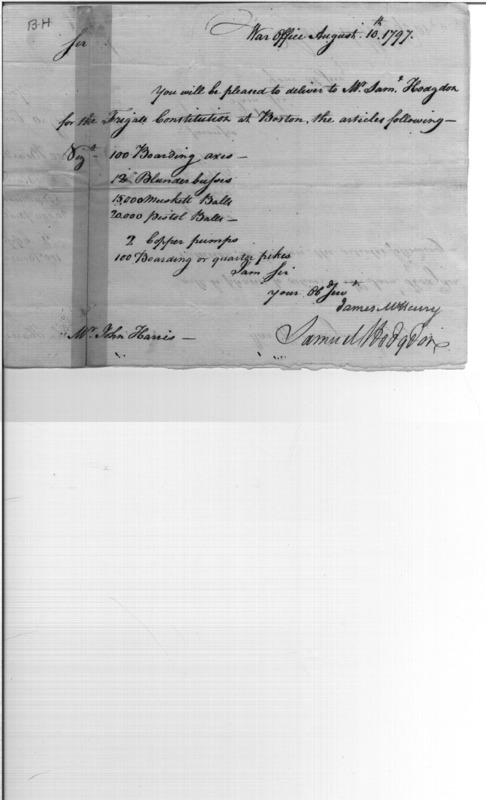 B-H
War Office August 10th 1797.
Sir
You will be pleased to deliver to Mr Saml Hodgdon
for the Frigate Constitution at Boston, the articles following—
Vizt 100 Boarding axes —
12 Blunderbusses
15,000 Muskett Balls
20,000 Pistol Balls —
2 Copper pumps
100 Boarding or quarter pikes
I am Sir
your Obd Servt
James McHenry
Mr John Harris —
Samuel Hodgdon